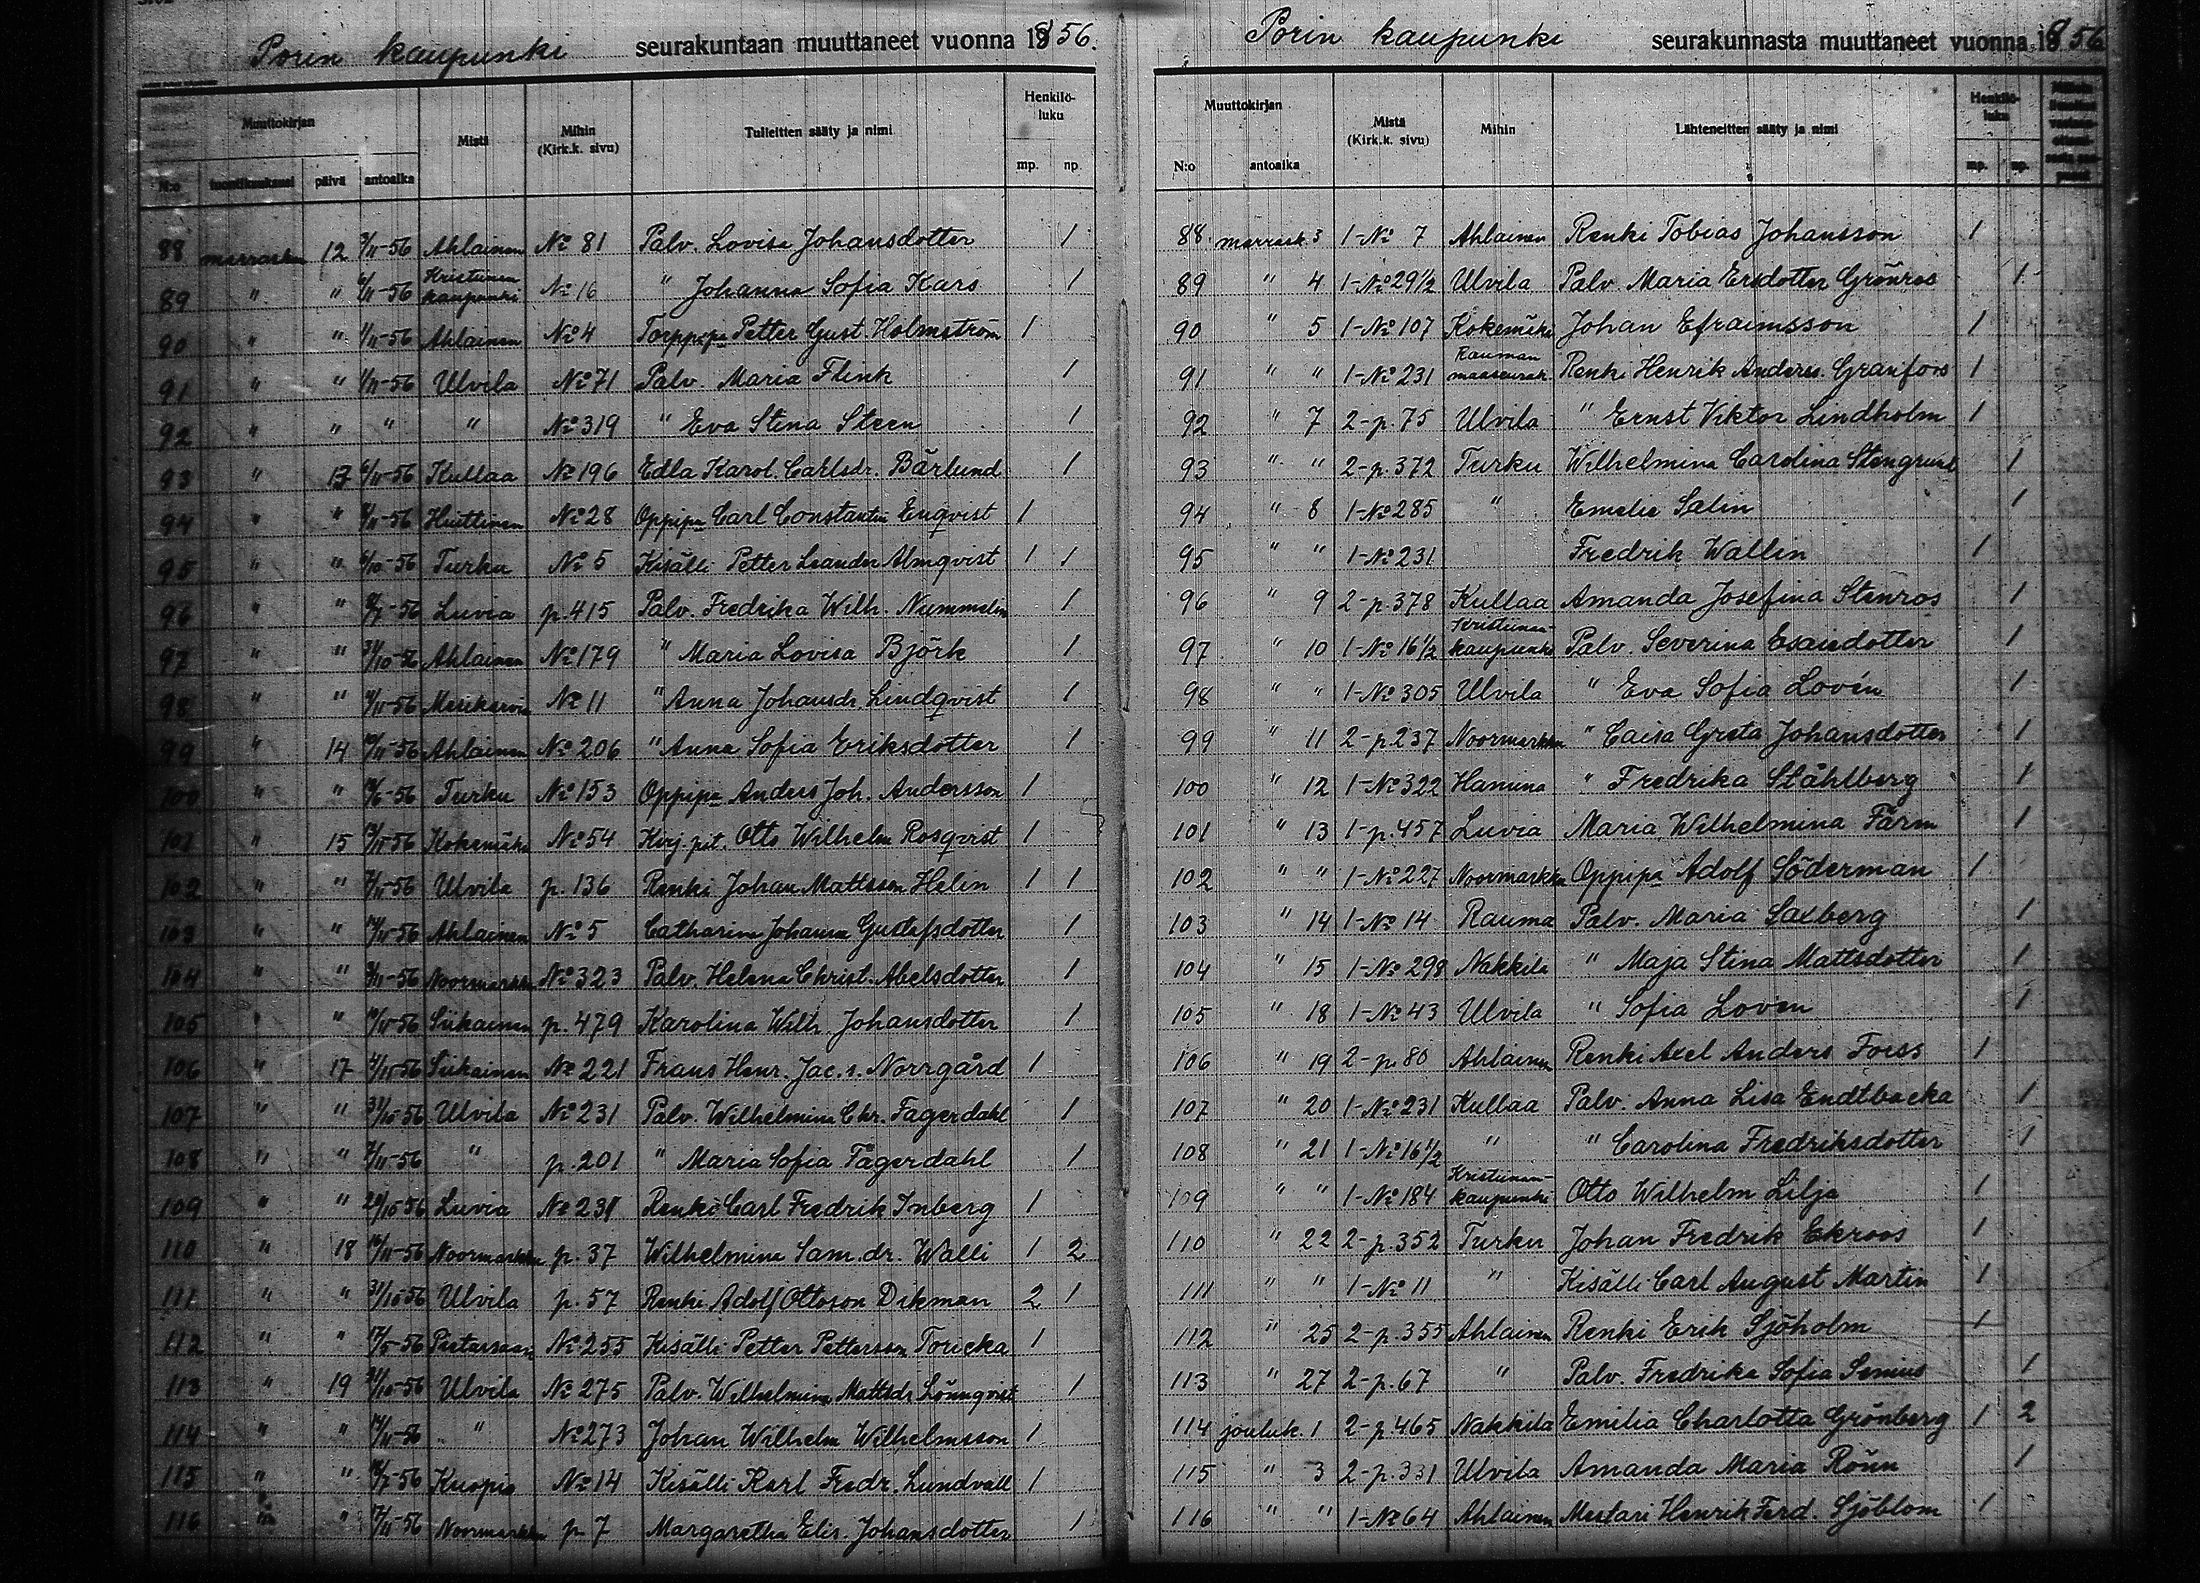 Porin kaupunki seurakuntaan muuttaneet vuonna 1856.
Muuttokirjan Mistä Mihin (Kirk.k. sivu) Tulleitten sääty ja nimi Henkilöluku
N:o tuontikuukausi päivä antoaika mp. np.
88 marrask. 12 3/11-56 Ahlainen No 81 Palv. Lovisa Johansdotter 1
89 " " 6/11-56 Kristiinankaupunki No 16 " Johanna Sofia Kars 1
90 " " 1/11-56 Ahlainen No 4 Torppipa Petter Gust. Holmström 1
91 " " 1/11-56 Ulvila No 71 Palv. Maria Flink 1
92 " " " " No 319 " Eva Stina Steen 1
93 " 13 6/11-56 Kullaa No 196 Edla Karol. Carlsdr. Bärlund 1
94 " " 8/11-56 Huittinen No 28 Oppipa Carl Constantin Enqvist 1
95 " " 6/10-56 Turku No 5 Kisälli Petter Leander Almqvist 1 1
96 " " Luvia p. 415 Palv. Fredrika Wilh. Nummelin 1
97 " " 31/10-56 Ahlainen No 179 " Maria Lovisa Björk 1
98 " " 4/11-56 Merikarvia No 11 " Anna Johansdr. Lindqvist 1
99 " 14 10/11-56 Ahlainen No 206 " Anna Sofia Eriksdotter 1
100 " " Turku No 153 Oppipa Anders Joh. Andersson 1
101 " 15 13/11-56 Kokemäki No 54 Kirj. pit. Otto Wilhelm Rosqvist 1
102 " " 7/11-56 Ulvila p. 136 Renki Johan Mattsson Helin 1 1
103 " " 14/11-56 Ahlainen No 5 Catharina Johanna Gustafsdotter 1
104 " " Noormarkku No 323 Palv. Helena Christ. Abelsdotter 1
105 " " 10/11-56 Siikainen p. 479 Karolina Wilh. Johansdotter 1
106 " 17 4/11-56 Siikainen No 221 Frans Henr. Jac. s. Norrgård 1
107 " " 31/10-56 Ulvila No 231 Palv. Wilhelmina Chr. Fagerdahl 1
108 " " 7/11-56 " p. 201 " Maria Sofia Fagerdahl 1
109 " " 24/10-56 Luvia No 231 Renki Carl Fredrik Inberg 1
110 " 18 16/11-56 Noormarkku p. 37 Wilhelmina Sam. dr. Walli 1 2
111 " " 31/10-56 Ulvila p. 57 Renki Adolf Ottoson Dikman 2 1
112 " " 17/5-56 Pietarsaari No 255 Kisälli Petter Petterson Toricka 1
113 " 19 31/10-56 Ulvila No 275 Palv. Wilhelmina Mattsdr. Lönnqvist 1
114 " " 14/11-56 " No 273 Johan Wilhelm Wilhelmsson 1
115 " " Kuopio No 14 Kisälli Karl Fredr. Lundvall 1
116 " " 17/11-56 Noormarkku p. 7 Margaretha Elis. Johansdotter 1
Porin kaupunki seurakunnasta muuttaneet vuonna 1856
Muuttokirjan Mistä (Kirk.k. sivu) Mihin Lähteneitten sääty ja nimi Henkilöluku
N:o antoaika mp. np.
88 marrask. 3 1-No 7 Ahlainen Renki Tobias Johansson 1
89 " 4 1-No 29 1/2 Ulvila Palv. Maria Ersdotter Grönros 1
90 " 5 1-No 107 Kokemäki Johan Efraimsson 1
91 " " 1-No 231 Rauman maaseurak. Renki Henrik Anderss. Granfors 1
92 " 7 2-p. 75 Ulvila " Ernst Viktor Lindholm 1
93 " " 2-p. 372 Turku Wilhelmina Carolina Stengrund 1
94 " 8 1-No 285 " Emelie Salin 1
95 " " 1-No 231 Fredrik Wallin 1
96 " 9 2-p. 378 Kullaa Amanda Josefina Stenros 1
97 " 10 1-No 16 1/2 Kristiinankaupunki Palv. Severina Esaudotter 1
98 " " 1-No 305 Ulvila " Eva Sofia Lovén 1
99 " 11 2-p. 237 Noormarkku " Caisa Greta Johansdotter 1
100 " 12 1-No 322 Hamina " Fredrika Ståhlberg 1
101 " 13 1-p. 457 Luvia Maria Wilhelmina Färm 1
102 " " 1-No 227 Noormarkku Oppipa Adolf Söderman 1
103 " 14 1-No 14 Rauma Palv. Maria Saxberg 1
104 " 15 1-No 298 Nakkila " Maja Stina Mattsdotter 1
105 " 18 1-No 43 Ulvila " Sofia Loven 1
106 " 19 2-p. 80 Ahlainen Renki Axel Anders Forss 1
107 " 20 1-No 231 Kullaa Palv. Anna Lisa Endtbacka 1
108 " 21 1-No 16 1/2 " " Carolina Fredriksdotter 1
109 " " 1-No 184 Kristiinankaupunki Otto Wilhelm Lilja 1
110 " 22 2-p. 352 Turku Johan Fredrik Ekroos 1
111 " " 1-No 11 " Kisälli Carl August Martin 1
112 " 25 2-p. 355 Ahlainen Renki Erik Sjöholm 1
113 " 27 2-p. 67 " Palv. Fredrika Sofia Senius 1
114 jouluk. 1 2-p. 465 Nakkila Emilia Charlotta Grönberg 1 2
115 " 3 2-p. 331 Ulvila Amanda Maria Rönn 1
116 " " 1-No 64 Ahlainen Mestari Henrik Ferd. Sjöblom 1